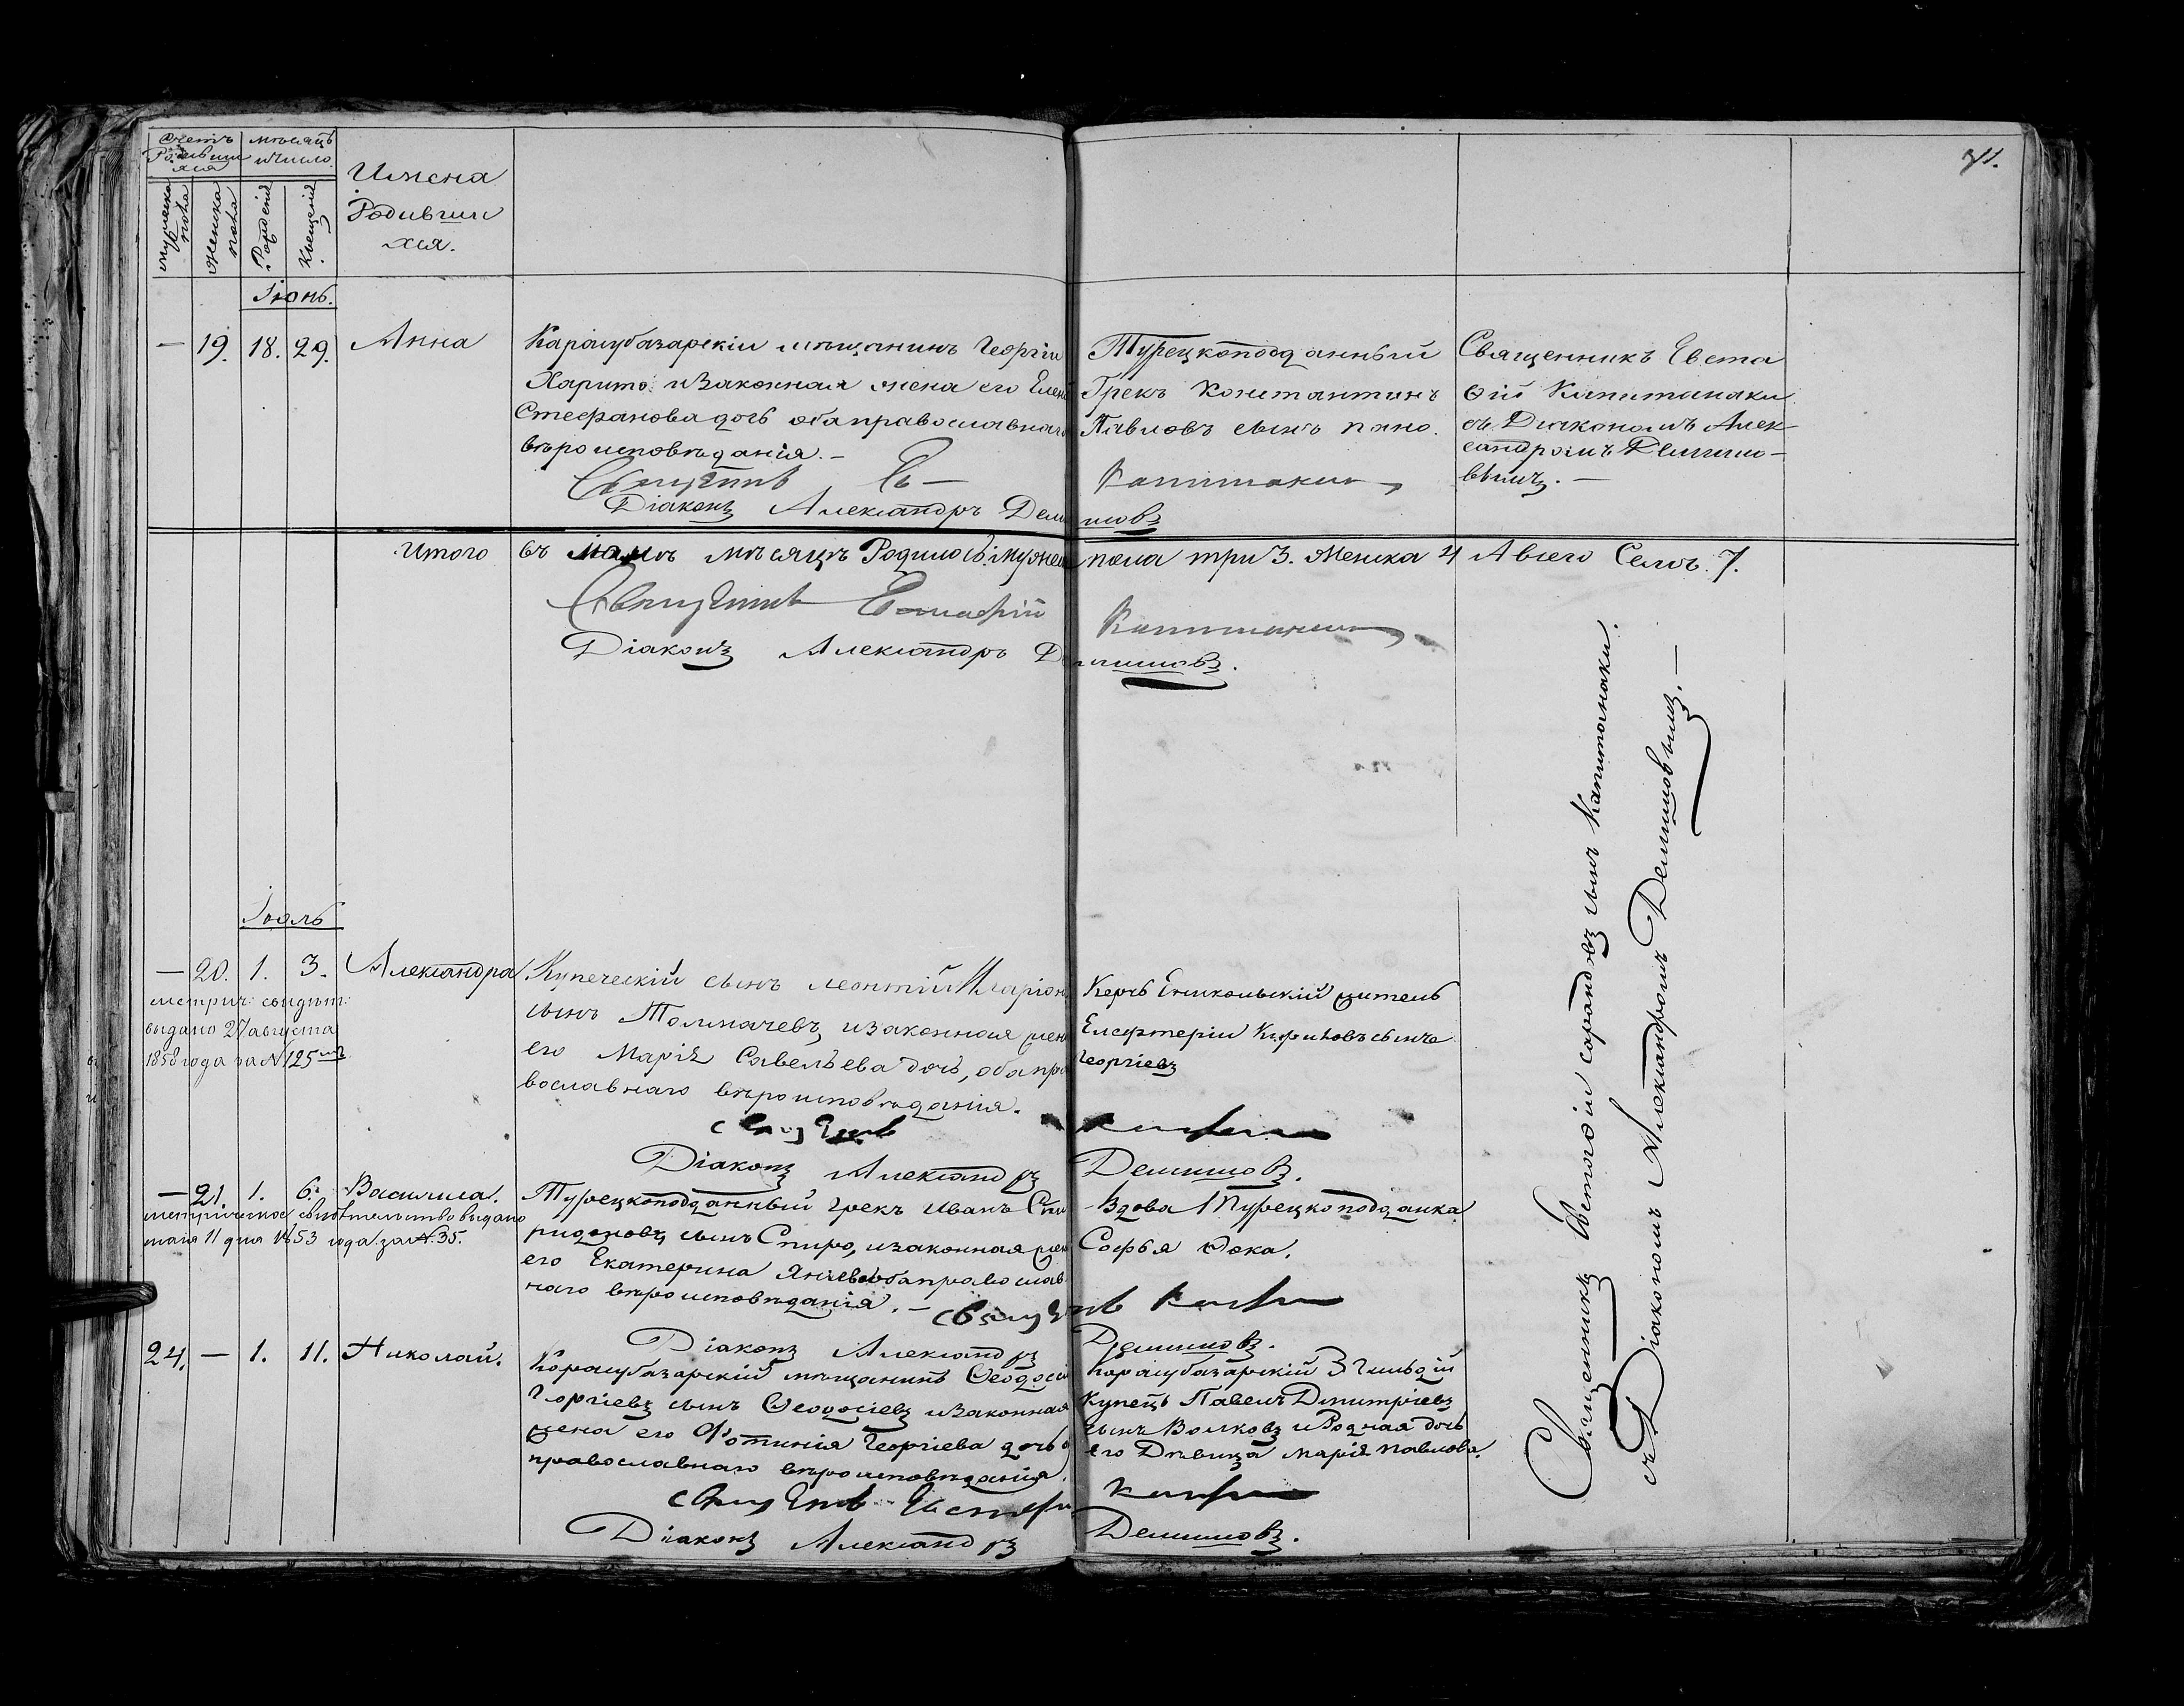 Счетъ Родившихся
Мѣсяцъ и число
мужеска пола
женска пола
Рожденія
Крещенія
Имена
Родивши
хся.
31.
Іюнь.
— 19. 18. 29. Анна
Карасубазарскіи мѣщанинъ Георгіи
Харито и законная жена его Елена
Стефанова дочь оба православнаго
вѣроисповѣданія. —
Турецкоподданный
Грекъ Константинъ
Павловъ сынъ Пано.
Священникъ Евста
ѳій Капитанаки
съ Діакономъ Алек-
сандромъ Демишо-
вымъ. —
Священникъ Ев— Капитанаки
Діаконъ Александръ Демишовъ
Итого въ маѣ мѣсяцѣ Родилось: мужеска пола три 3. Женска 4 А всего Семь 7.
Священникъ Евстафій Капитанаки
Діаконъ Александръ Демишовъ.
Іюль
— 20. 1. 3. Александра
метрич: свидѣт:
выдано 27 августа
1858 года за № 125мъ
Купеческій сынъ Леонтій Иларіон
сынъ Толмачевъ, и законная жена
его Марія Савельева дочь, оба пра
вославнаго вѣроисповѣданія.
Керчь Еникольскій житель
Елефтеріи сынъ
Георгіевъ
Священникъ
Діаконъ Александръ Демишовъ.
— 21. 1. 6. Василиса.
метрическое свидѣтельство выдано
маія 11 дня 1853 года за №. 35.
Турецкоподданный грекъ Иванъ Спи
ридоновъ сынъ Спиро, и законная жена
его Екатерина Яніева оба православ
наго вѣроисповѣданія. —
Вдова Турецкоподданка
Софья
Священникъ
Діаконъ Александръ Демишовъ.
24. — 1. 11. Николай.
Карасубазарскій мѣщанинъ Ѳеодосій
Георгіевъ сынъ Ѳеодосіевъ и законная
жена его Фотинія Георгіева дочь
православнаго вѣроисповѣданія.
Карасубазарскій 3 гильдій
Купецъ Павелъ Дмитріевъ
сынъ Волковъ и Родная дочь
его Дѣвица Марія Павлова.
Священникъ Евстафій
Діаконъ Александръ Демишовъ.
Священникъ Евстаѳіи Сарандовъ сынъ Капитанаки.
съ Діакономъ Александромъ Демишовымъ. —